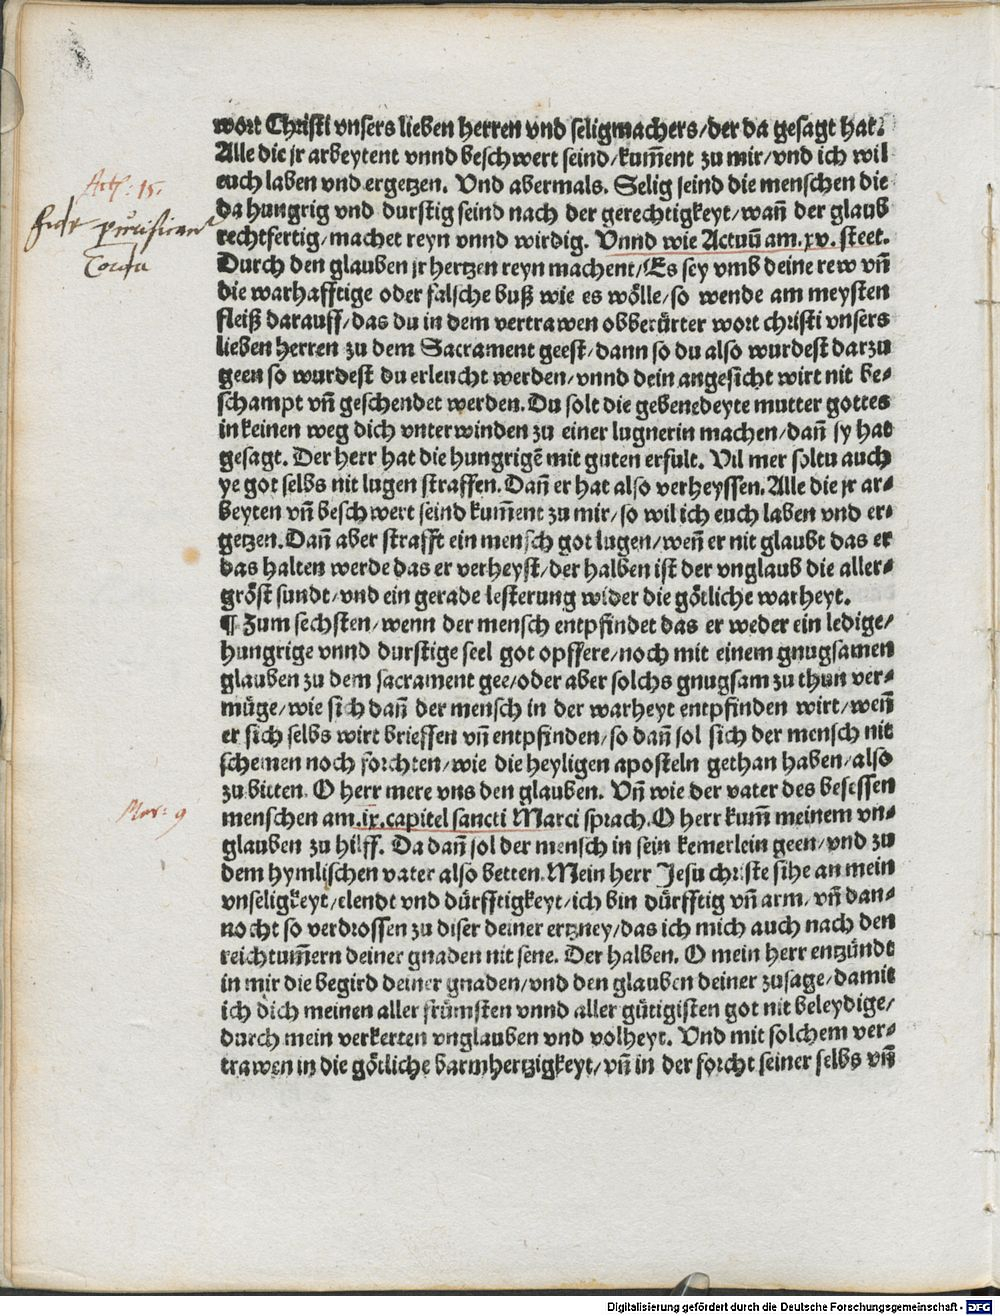 wort Christi vnsers lieben herren vnd seligmachers/der da gesagt hat:
Alle die jr arbeytent vnnd beschwert seind/kum̃ent zu mir/vnd ich wil
euch laben vnd ergetzen. Vnd abermals. Selig seind die menschen die
da hungrig vnd durstig seind nach der gerechtigkeyt/wañ der glaub
rechtfertig/machet reyn vnnd wirdig. Vnnd wie Actuū am.xv.steet.
Durch den glauben jr hertzen reyn machent/Es sey vmb deine rew vñ
die warhafftige oder falsche buß wie es wölle/so wende am meysten
fleiß darauff/das du in dem vertrawen obberürter wort christi vnsers
lieben herren zu dem Sacrament geest/dann so du also wurdest darzu
geen so wurdest du erleucht werden/vnnd dein angesicht wirt nit be⸗
schampt vñ geschendet werden. Du solt die gebenedeyte mutter gottes
in keinen weg dich vnterwinden zu einer lugnerin machen/dañ sy hat
gesagt. Der herr hat die hungrigē mit guten erfult. Vil mer soltu auch
ye got selbs nit lugen straffen. Dañ er hat also verheyssen. Alle die jr ar⸗
beyten vñ beschwert seind kum̃ent zu mir/so wil ich euch laben vnd er⸗
getzen. Dañ aber strafft ein mensch got lugen/weñ er nit glaubt das er
das halten werde das er verheyst/der halben ist der vnglaub die aller⸗
gröst sundt/vnd ein gerade lesterung wider die götliche warheyt.
¶ Zum sechsten/wenn der mensch entpfindet das er weder ein ledige/
hungrige vnnd durstige seel got opffere/noch mit einem gnugsamen
glauben zu dem sacrament gee/oder aber solchs gnugsam zu thun ver⸗
müge/wie sich dañ der mensch in der warheyt entpfinden wirt/weñ
er sich selbs wirt brieffen vñ entpfinden/so dañ sol sich der mensch nit
schemen noch forchten/wie die heyligen aposteln gethan haben/also
zu bitten. O herr mere vns den glauben. Vñ wie der vater des besessen
menschen am.ix.capitel sancti Marci sprach. O herr kum̃ meinem vn⸗
glauben zu hilff. Da dañ sol der mensch in sein kemerlein geen/vnd zu
dem hymlischen vater also betten. Mein herr Jesu christe sihe an mein
vnseligkeyt/elendt vnd dürfftigkeyt/ich bin dürfftig vñ arm/vñ dan⸗
nocht so verdrossen zu diser deiner ertzney/das ich mich auch nach den
reichtum̃ern deiner gnaden nit sene. Der halben. O mein herr entzündt
in mir die begird deiner gnaden/vnd den glauben deiner zusage/damit
ich dich meinen aller frümsten vnnd aller gütigisten got nit beleydige/
durch mein verkerten vnglauben vnd volheyt. Vnd mit solchem ver⸗
trawen in die götliche barmhertzigkeyt/vñ in der forcht seiner selbs vñ
Act: 15.
fide purificans
Corda
Mar: 9
Digitalisierung gefördert durch die Deutsche Forschungsgemeinschaft - DFG